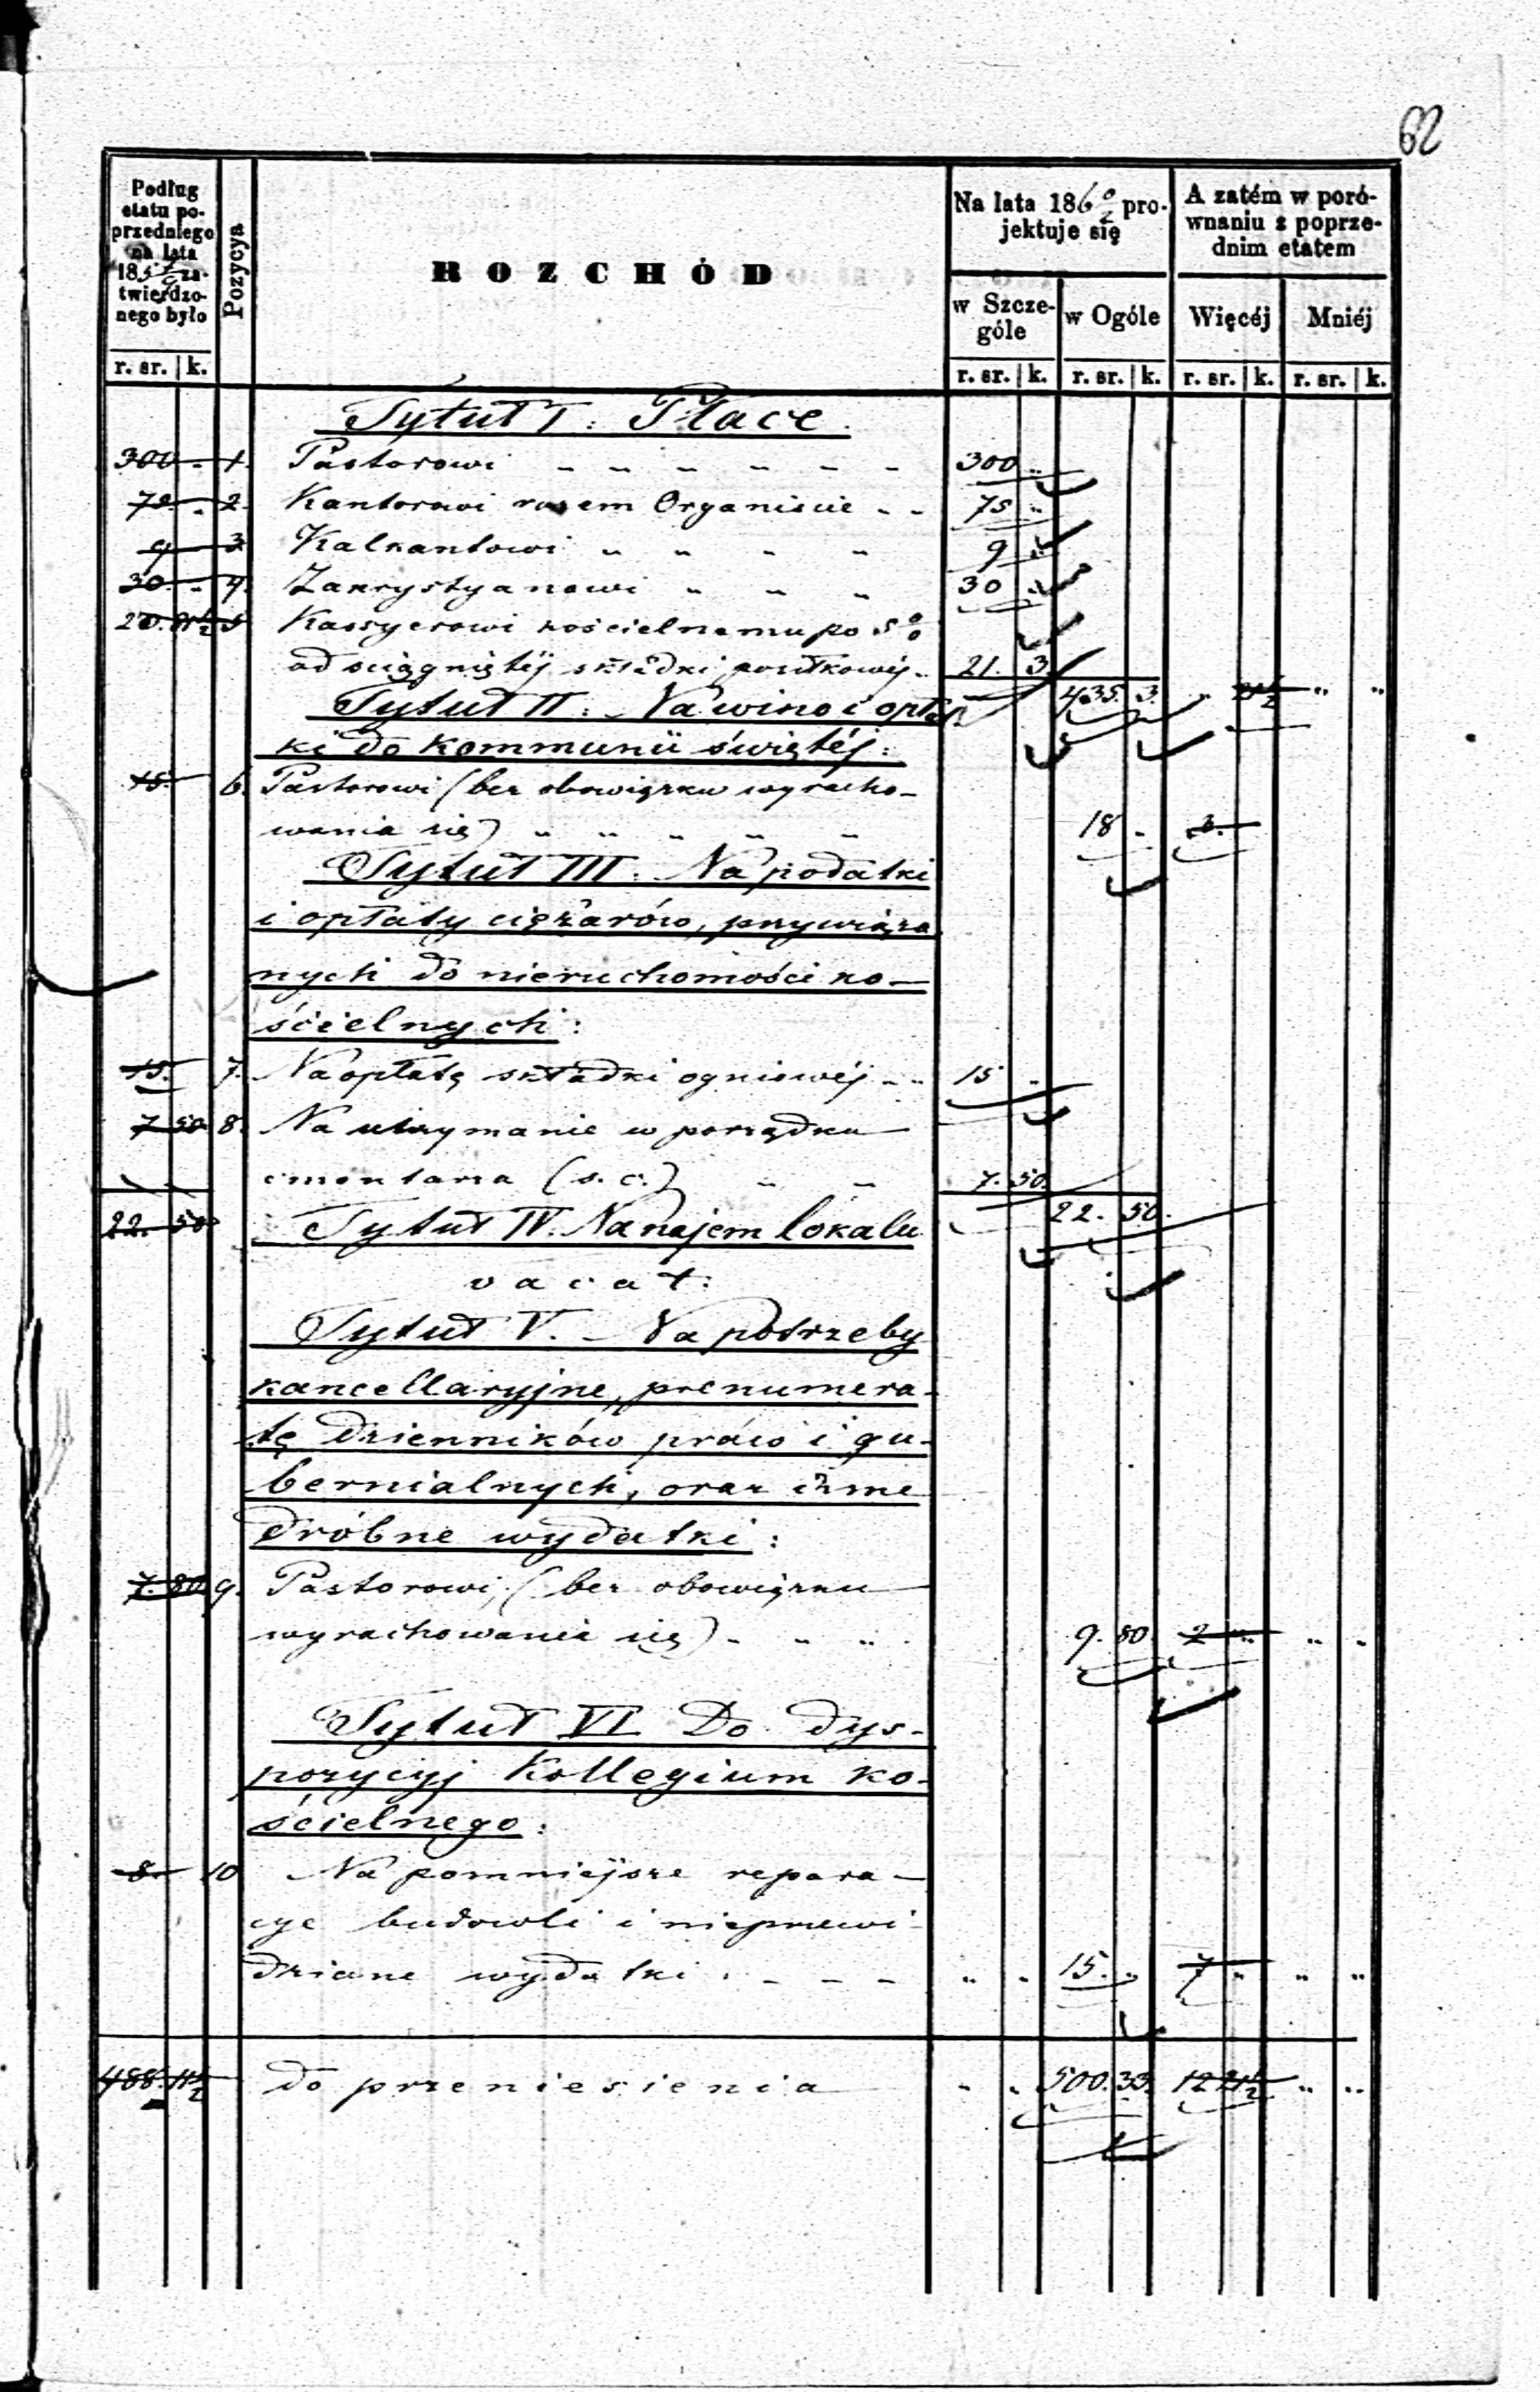 62
Podług etatu poprzedniego na lata 185 7/9 zatwierdzonego było
Pozycya
ROZCHÓD
Na lata 186 0/2 projektuje się
A zatém w porównaniu z poprzednim etatem
w Szczególe w Ogóle Więcéj Mniéj
r. sr. k. r. sr. k. r. sr. k. r. sr. k. r. sr. k.
Tytuł I. Płace.
300 " 1. Pastorowi " " " " " " 300 "
75 " 2. Kantorowi razem Organiście " " 75 "
9 3 Kalkantowi " " " " 9 "
30 " 4. Zakrystyanowi " " " 30 "
20. 81 1/2 5 Kassyerowi kościelnemu po 5 %
od ściągniętéj składki posiłkowéj " 21. 3.
Tytuł II. Na wino i opłat- 435. 3. " 21 1/2 " "
ki do kommunii świętéj:
15. 6. Pastorowi (bez obowiązku wyracho-
wania się) " " " " " 18 " 3.
Tytuł III. Na podatki
i opłaty ciężarów, przywiąza
nych do nieruchomości ko-
ścielnych:
15. 7. Na opłatę składki ogniowéj " " 15 "
7 50. 8. Na utrzymanie w porządku
cmentarza (s. c.) " " 7. 50.
22. 50. Tytuł IV. Na najem lokalu 22. 50.
vacat:
Tytuł V. Na potrzeby
kancellaryjne, prenumera-
tę Dzienników praw i gu-
bernialnych, oraz inne
drobne wydatki:
7. 80. 9. Pastorowi, (bez obowiązku
wyrachowania się) " " " 9. 80. 2 " " "
Tytuł VI. Do dys-
pozycyj Kollegium ko-
ścielnego:
8. 10 Na pomniejsze repara-
cye budowli i nieprzewi-
dziane wydatki. " " " " " 15. " 7 " " "
488. 11 1/2 do przeniesienia " " 500. 33. 12 21 1/2 " "